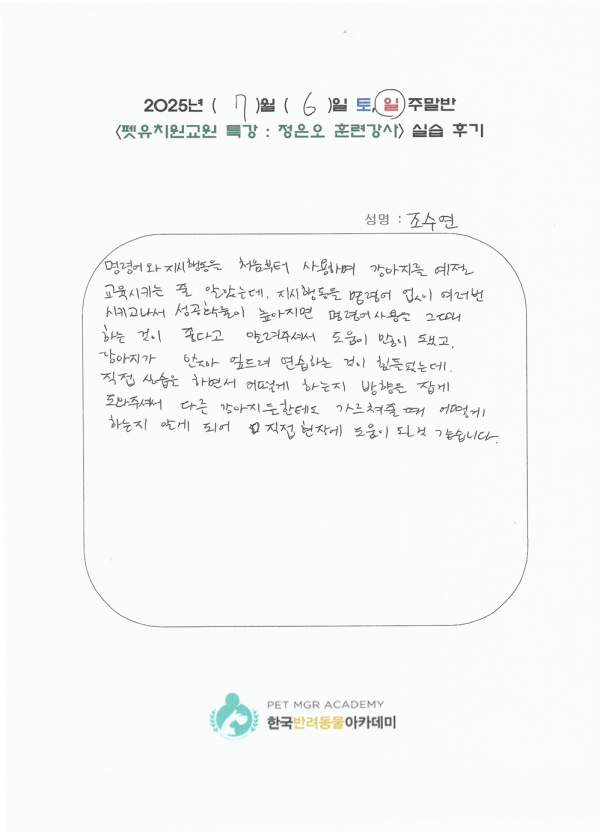 2025년 ( 7 )월 ( 6 )일 토, 일 주말반
<펫유치원교원 특강 : 정은오 훈련강사> 실습 후기
성명 : 조수연
명령어와 지시행동을 처음부터 사용하며 강아지를 예절
교육시키는 줄 알았는데. 지시행동을 명령어 없이 여러번
시키고나서 성공확률이 높아지면 명령어사용은 그때
하는 것이 좋다고 알려주셔서 도움이 많이 됐고,
강아지가 앉아 엎드려 연습하는 것이 힘들었는데.
직접 실습은 하면서 어떻게 하는지 방향은 잡게
도와주셔서 다른 강아지들한테도 가르쳐줄 때 어떻게
하는지 알게 되어 직접 현장에 도움이 될것 같습니다.
PET MGR ACADEMY
한국반려동물아카데미